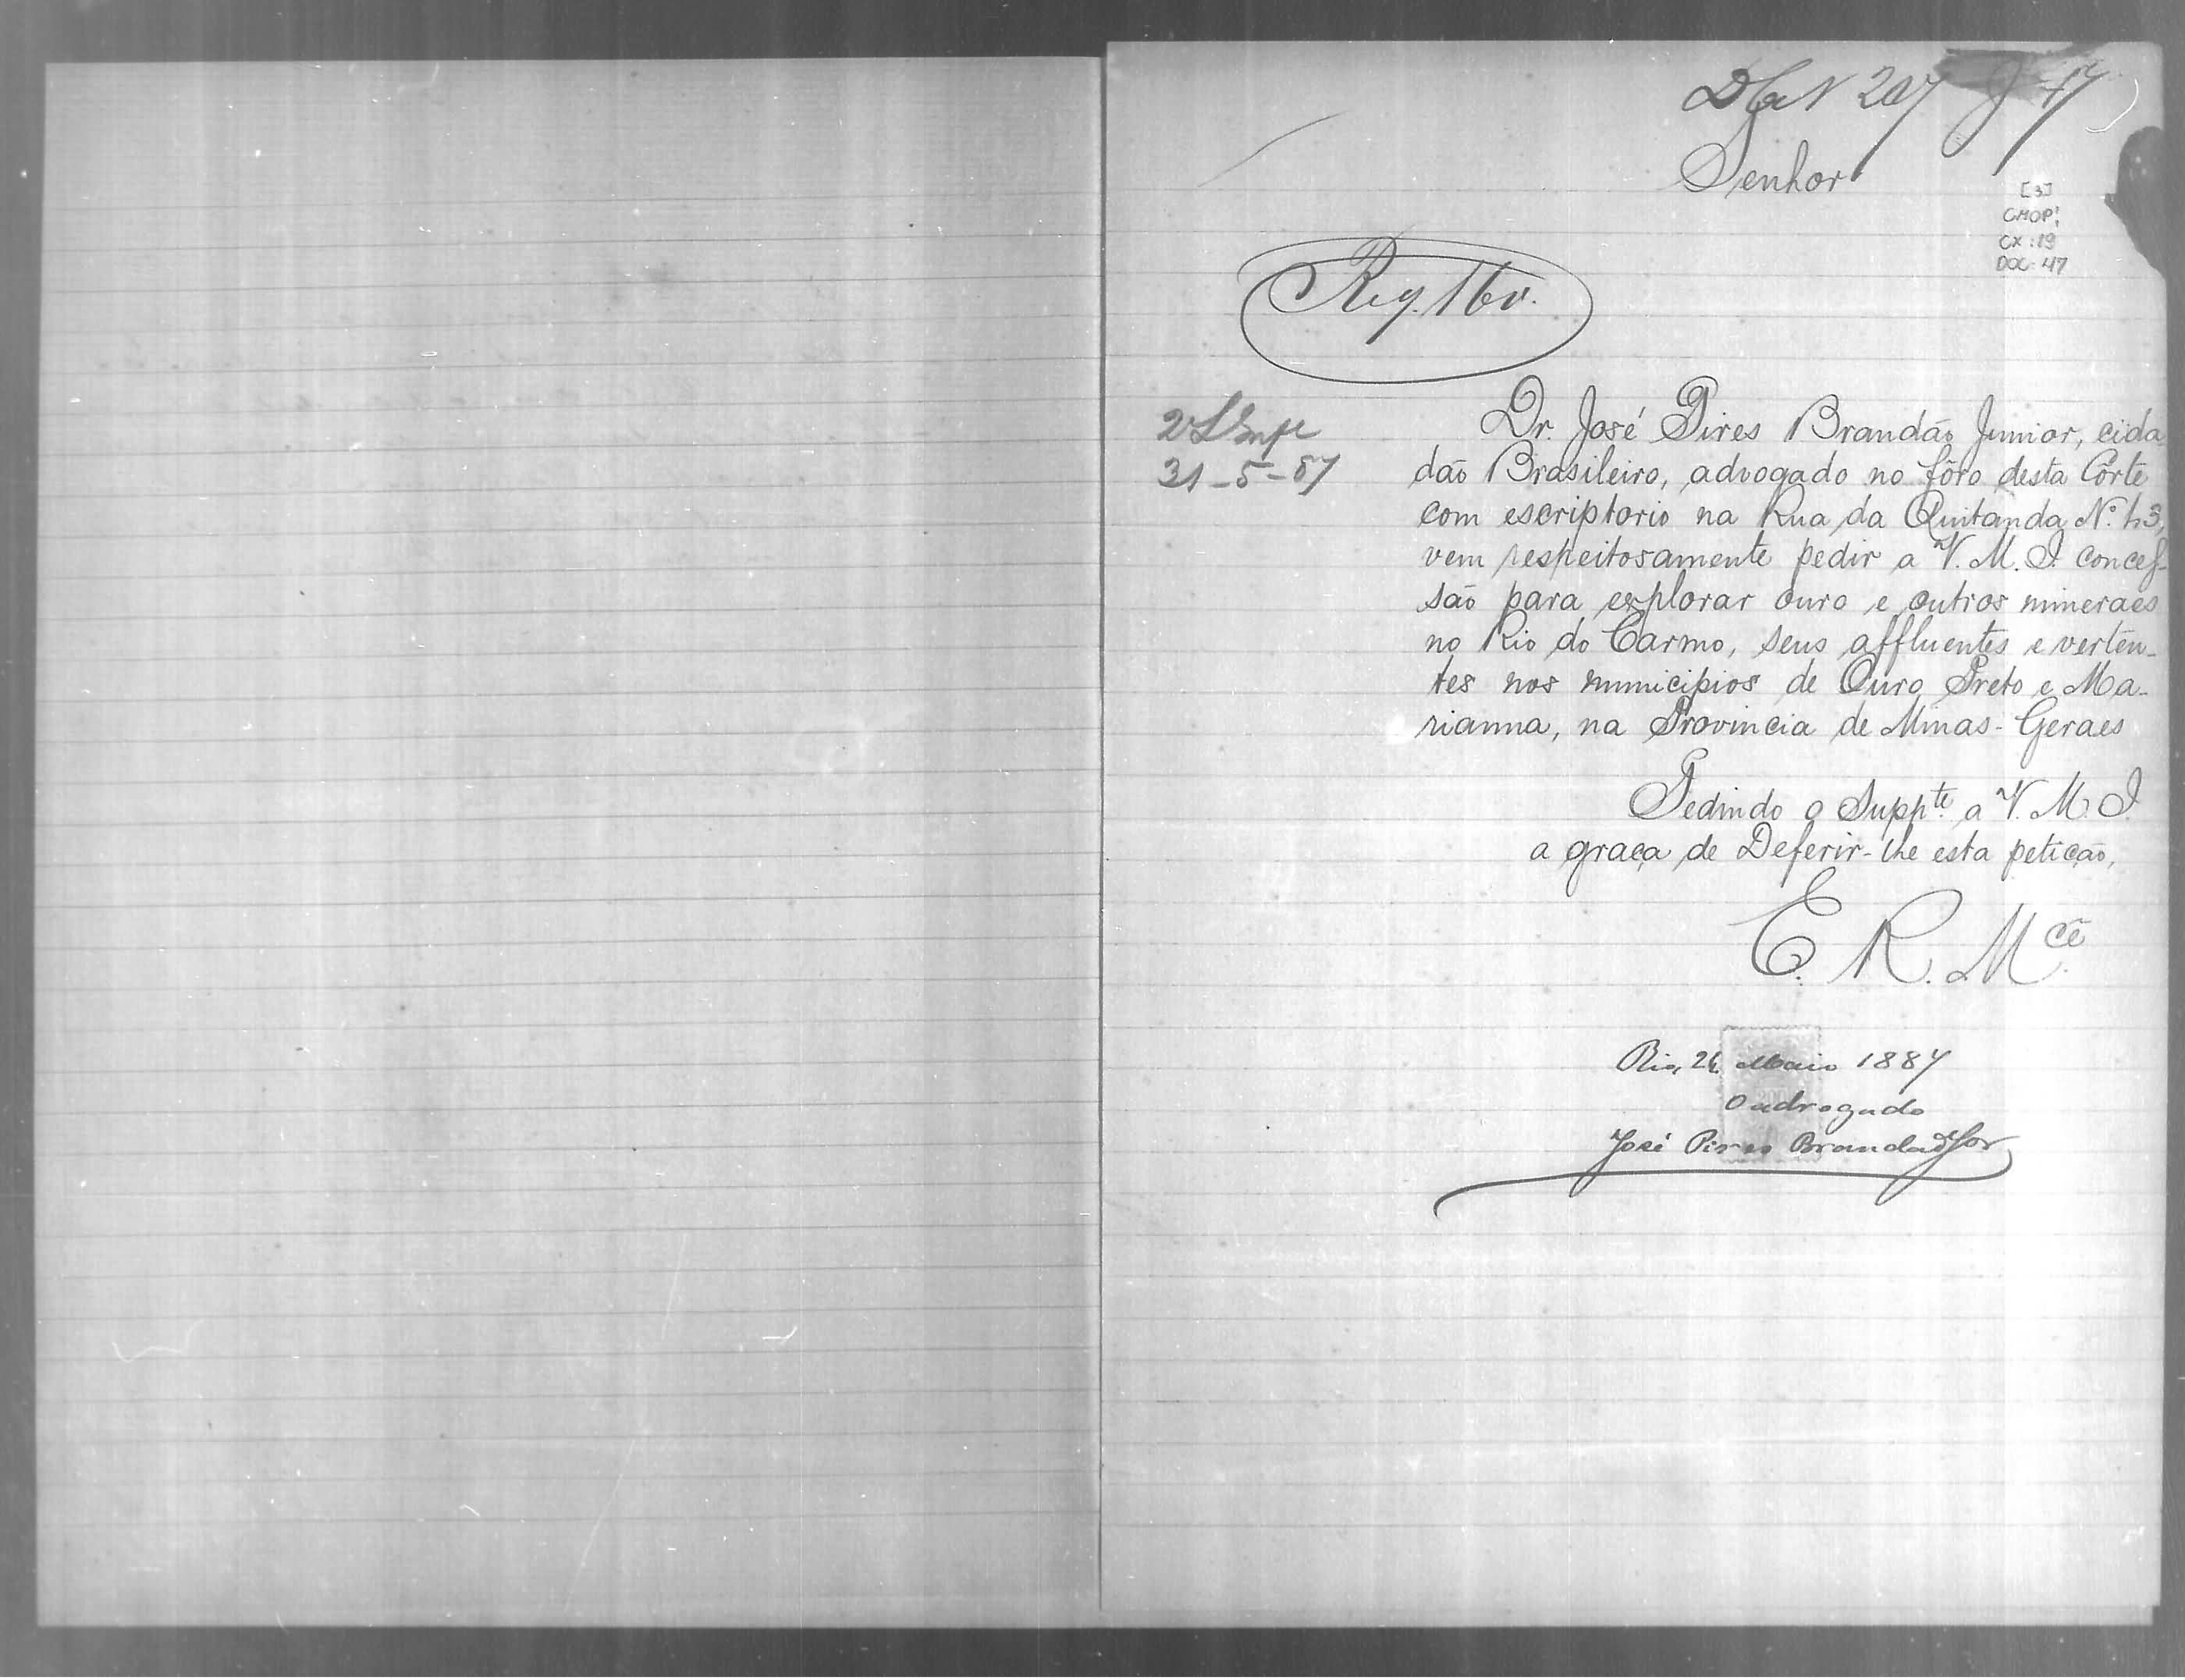 Senhor
[3]
CMOP!
CX: 19
DOC: 47
Reg. 16v.
31-5-87
Dr. José Pires Brandão Junior, cida-
dão Brasileiro, advogado no fôro desta Côrte
com escriptorio na Rua da Quitanda Nº
vem respeitosamente pedir a V. M. I. conces-
são para explorar ouro e outros mineraes
no Rio do Carmo, seus affluentes e verten-
tes nos municipios de Ouro Preto e Ma-
rianna, na Provincia de Minas-Geraes
Pedindo o Suppte. a V. M. I.
a graça de Deferir-lhe esta petição,
E. R. Mcê
Rio, Maio 1887
O advogado
José Pires Brandão Jor